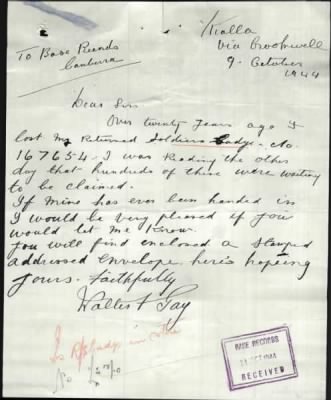 Kialla
via Crookwell
9. October
1944
To Base Records
Canberra
Dear Sirs
Over twenty years ago I
lost my Returned Soldiers Badge. No.
167654. I was Reading the other
day that hundreds of these were waiting
to be claimed.
If mine has ever been handed in
I would be very pleased if you
would let me know.
you will find enclosed a stamped
addressed envelope, here's hopeing
yours. Faithfully
Gay
BASE RECORDS
RECEIVED